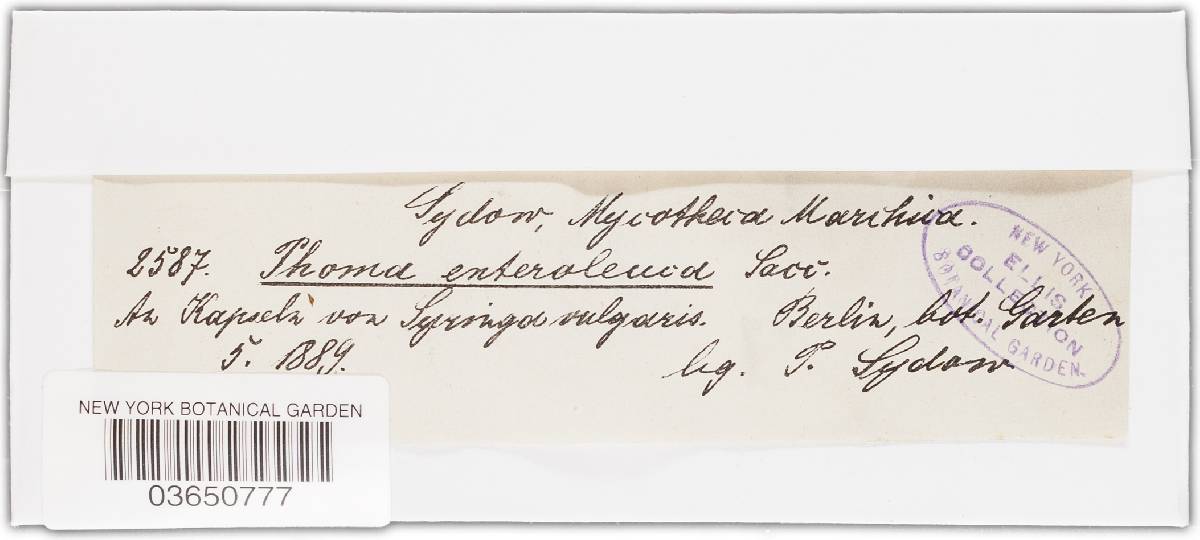 Sydow, Mycotheca Marchica.
2587. Phoma enteroleuca Sacc.
An Kapseln von Syringa vulgaris. Berlin, bot. Garten
5. 1889. leg. P. Sydow
NEW YORK
ELLIS
COLLECTION
BOTANICAL GARDEN.
NEW YORK BOTANICAL GARDEN
03650777